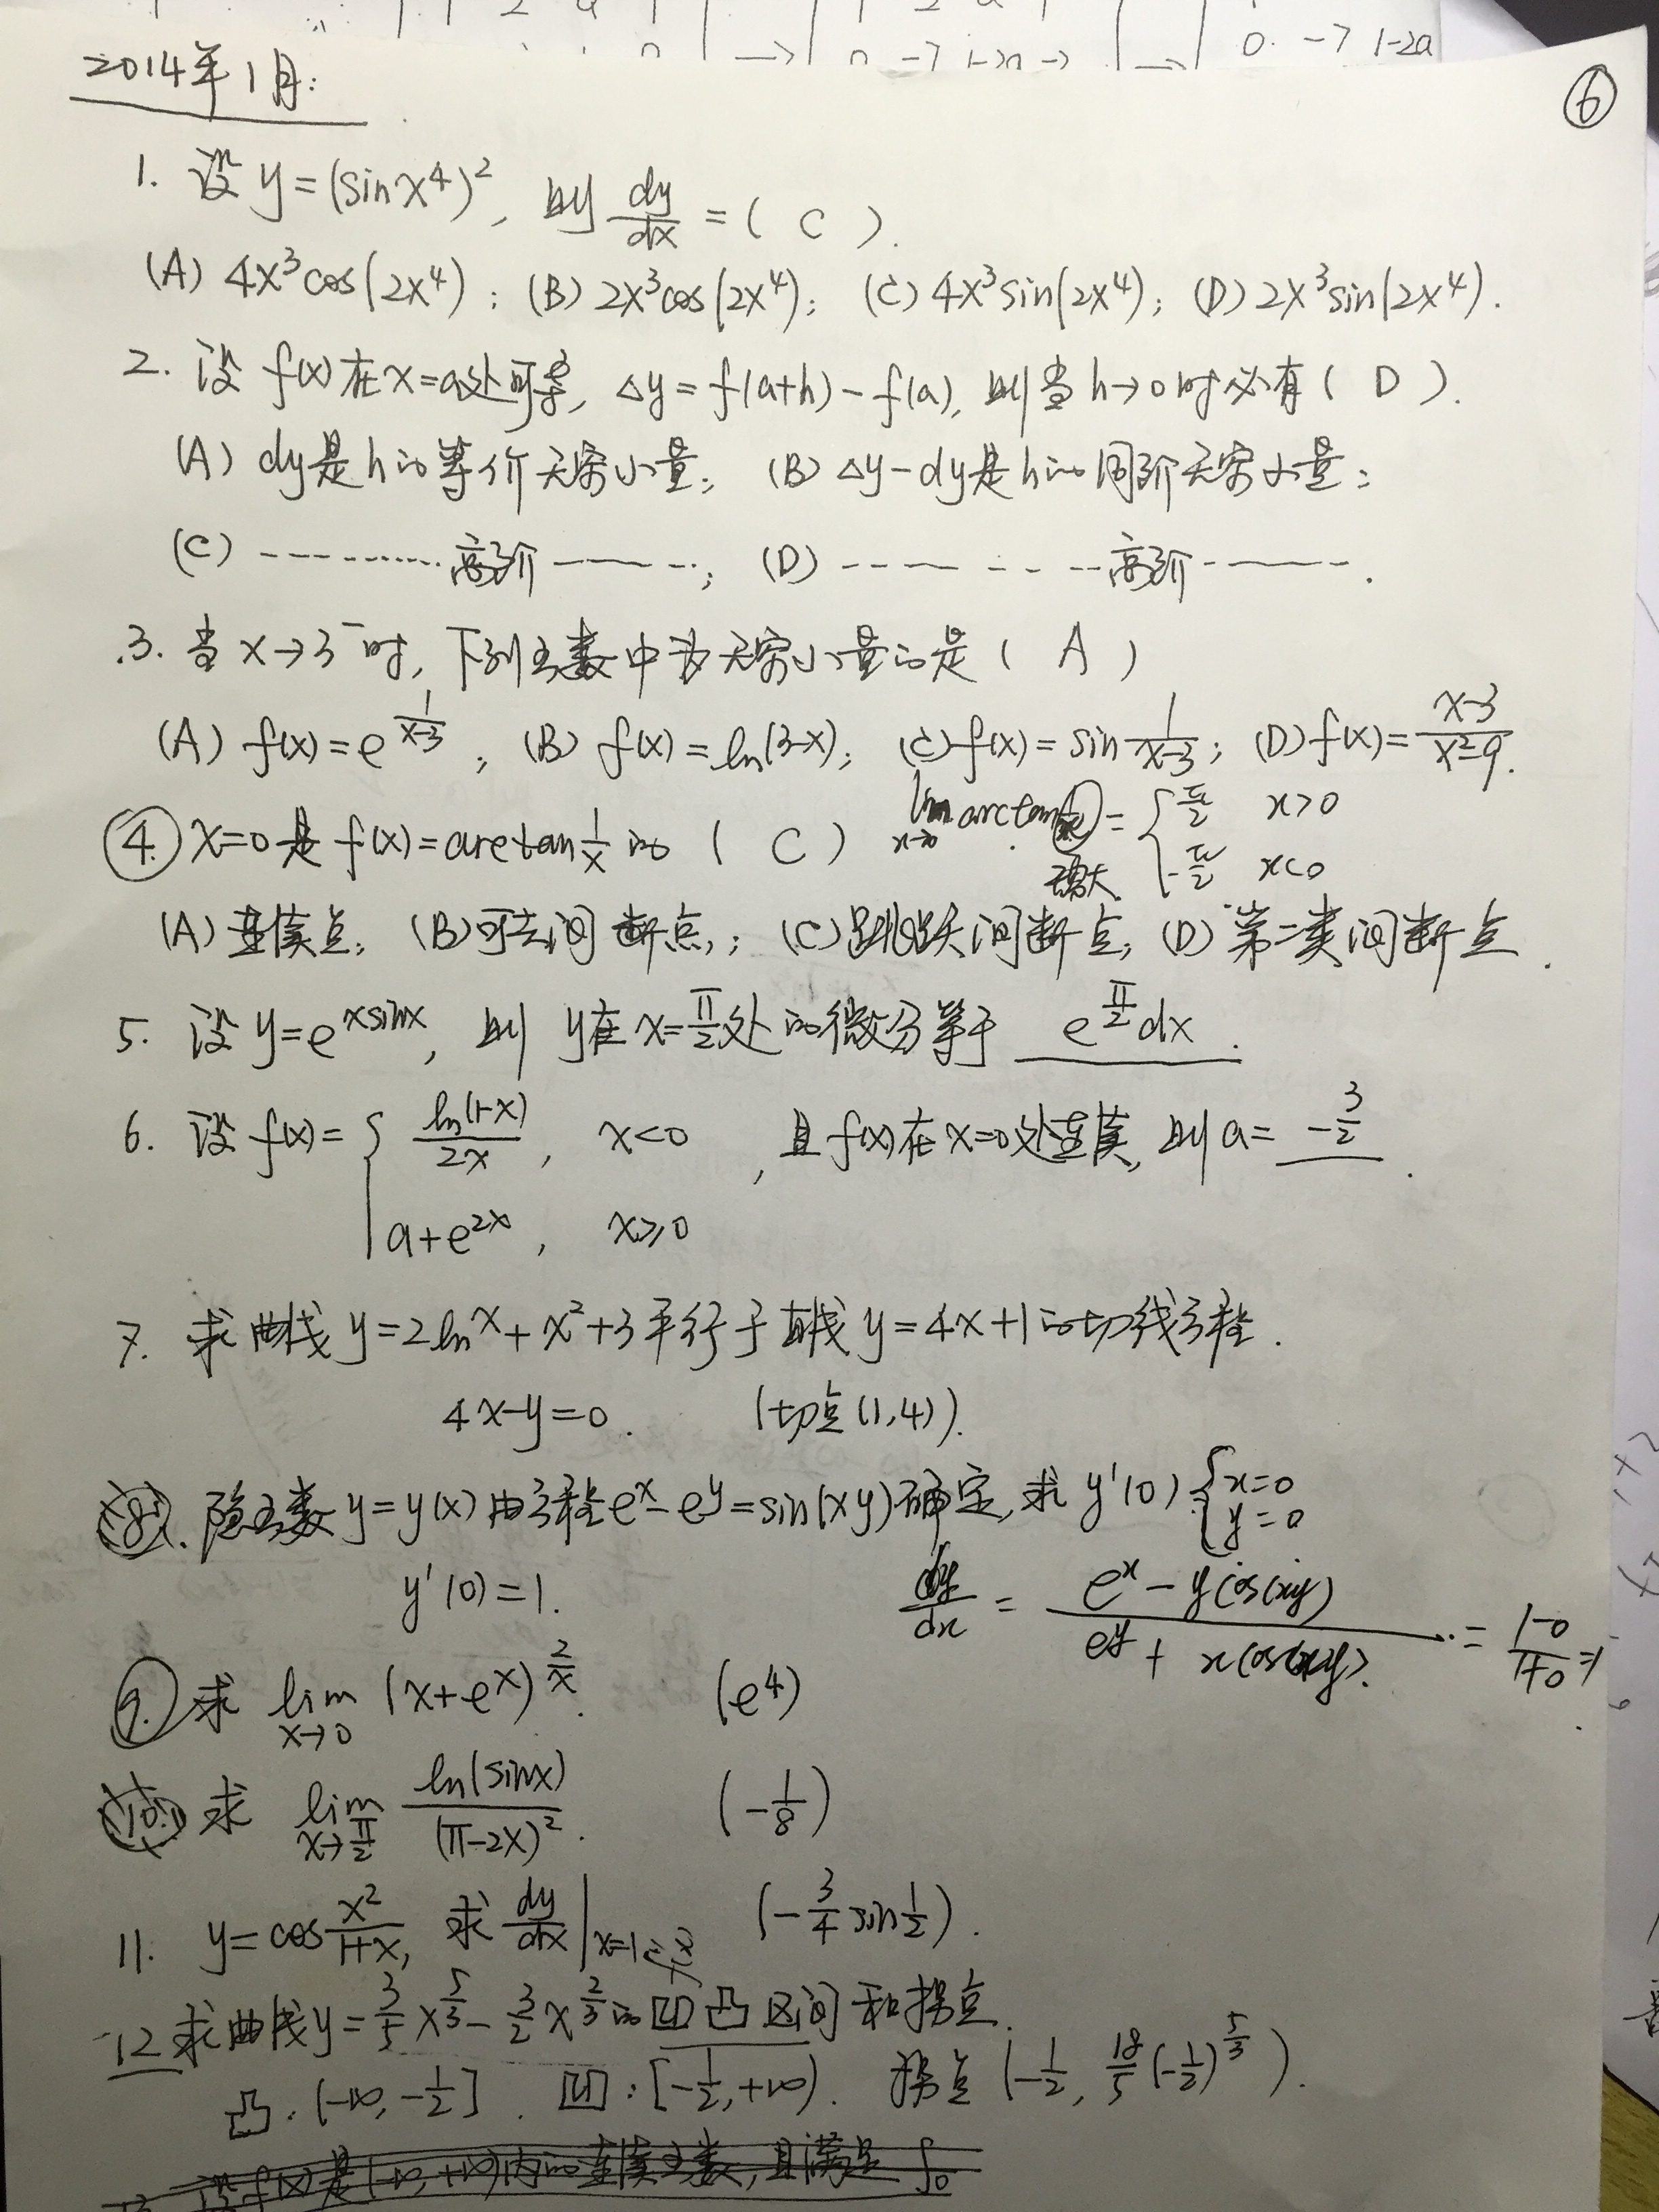 0 -7 1-2a
2014年1月:
⑥
1. 设 y=(sinx⁴)², 则 dy/dx = ( C ).
(A) 4x³cos(2x⁴); (B) 2x³cos(2x⁴); (C) 4x³sin(2x⁴); (D) 2x³sin(2x⁴).
2. 设 f(x) 在 x=a处可导, Δy=f(a+h)-f(a), 则当 h→0 时必有 ( D ).
(A) dy是h的等价无穷小量; (B) Δy-dy是h的同阶无穷小量;
(C) --------- 高阶 ------; (D) --- - - -- 高阶 ------.
3. 当 x→3⁻时, 下列函数中为无穷小量的是 ( A )
(A) f(x)=e^(1/(x-3)); (B) f(x)=ln(3-x); (C) f(x)=sin 1/(x-3); (D) f(x)=(x-3)/(x²-9).
④. x=0是 f(x)=arctan 1/x 的 ( C )
lim x→0 arctan 1/x = { π/2 x>0
-π/2 x<0
无穷大
(A) 连续点; (B) 可去间断点; (C) 跳跃间断点; (D) 第二类间断点.
5. 设 y=e^(xsinx), 则 y在 x=π/2处的微分等于 e^(π/2)dx.
6. 设 f(x)= { ln(1-x)/2x, x<0, 且f(x)在x=0处连续, 则 a= -3/2.
a+e^(2x), x≥0
7. 求曲线 y=2lnx+x²+3平行于直线 y=4x+1的切线方程.
4x-y=0. (切点(1,4)).
⑧. 隐函数 y=y(x) 由方程 e^x-e^y=sin(xy)确定, 求 y'(0) { x=0
y=0
y'(0)=1.
dy/dx = (e^x-ycos(xy))/(e^y+xcos(xy)) = (1-0)/(1+0)=1
⑨. 求 lim x→0 (x+e^x)^(2/x). (e⁴)
⑩. 求 lim x→π/2 ln(sinx)/(π-2x)². (-1/8)
11. y=cos x²/(1+x), 求 dy/dx|x=1 (-3/4 sin 1/2).
12 求曲线 y=3/5 x^(5/3) - 3/2 x^(2/3) 的凹凸区间和拐点.
凸: (-∞, -1/2]. 凹: [-1/2, +∞). 拐点 (-1/2, 18/5(-1/2)^(5/3)).
13. 设f(x)是(-∞,+∞)内的连续函数, 且满足 ∫₀